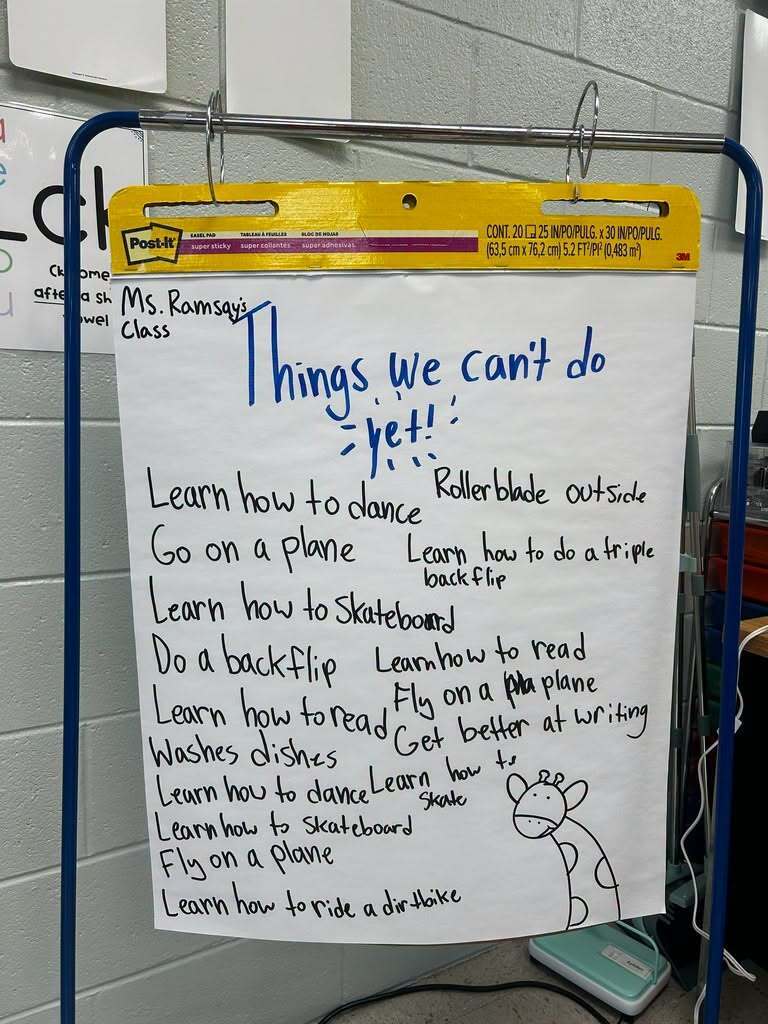 ck
Ck come
after a sh
vowel
Post-it
EASEL PAD
super sticky
TABLEAU À FEUILLES
super collantes
BLOC DE HOJAS
super adhesivas
CONT. 20 25 IN/PO/PULG. x 30 IN/PO/PULG.
(63,5 cm x 76,2 cm) 5.2 FT²/PI² (0,483 m²)
3M
Ms. Ramsay's
Class
Things we can't do
yet!
Learn how to dance
Go on a plane
Learn how to Skateboard
Do a backflip
Learn how to read
Washes dishes
Learn how to dance
Learn how to skateboard
Fly on a plane
Learn how to ride a dirtbike
Rollerblade outside
Learn how to do a triple
backflip
Learn how to read
Fly on a plane
Get better at writing
Learn how to
skate